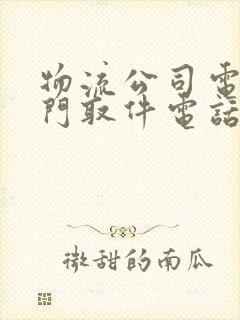 物流公司電
門取件電話
微甜的南瓜